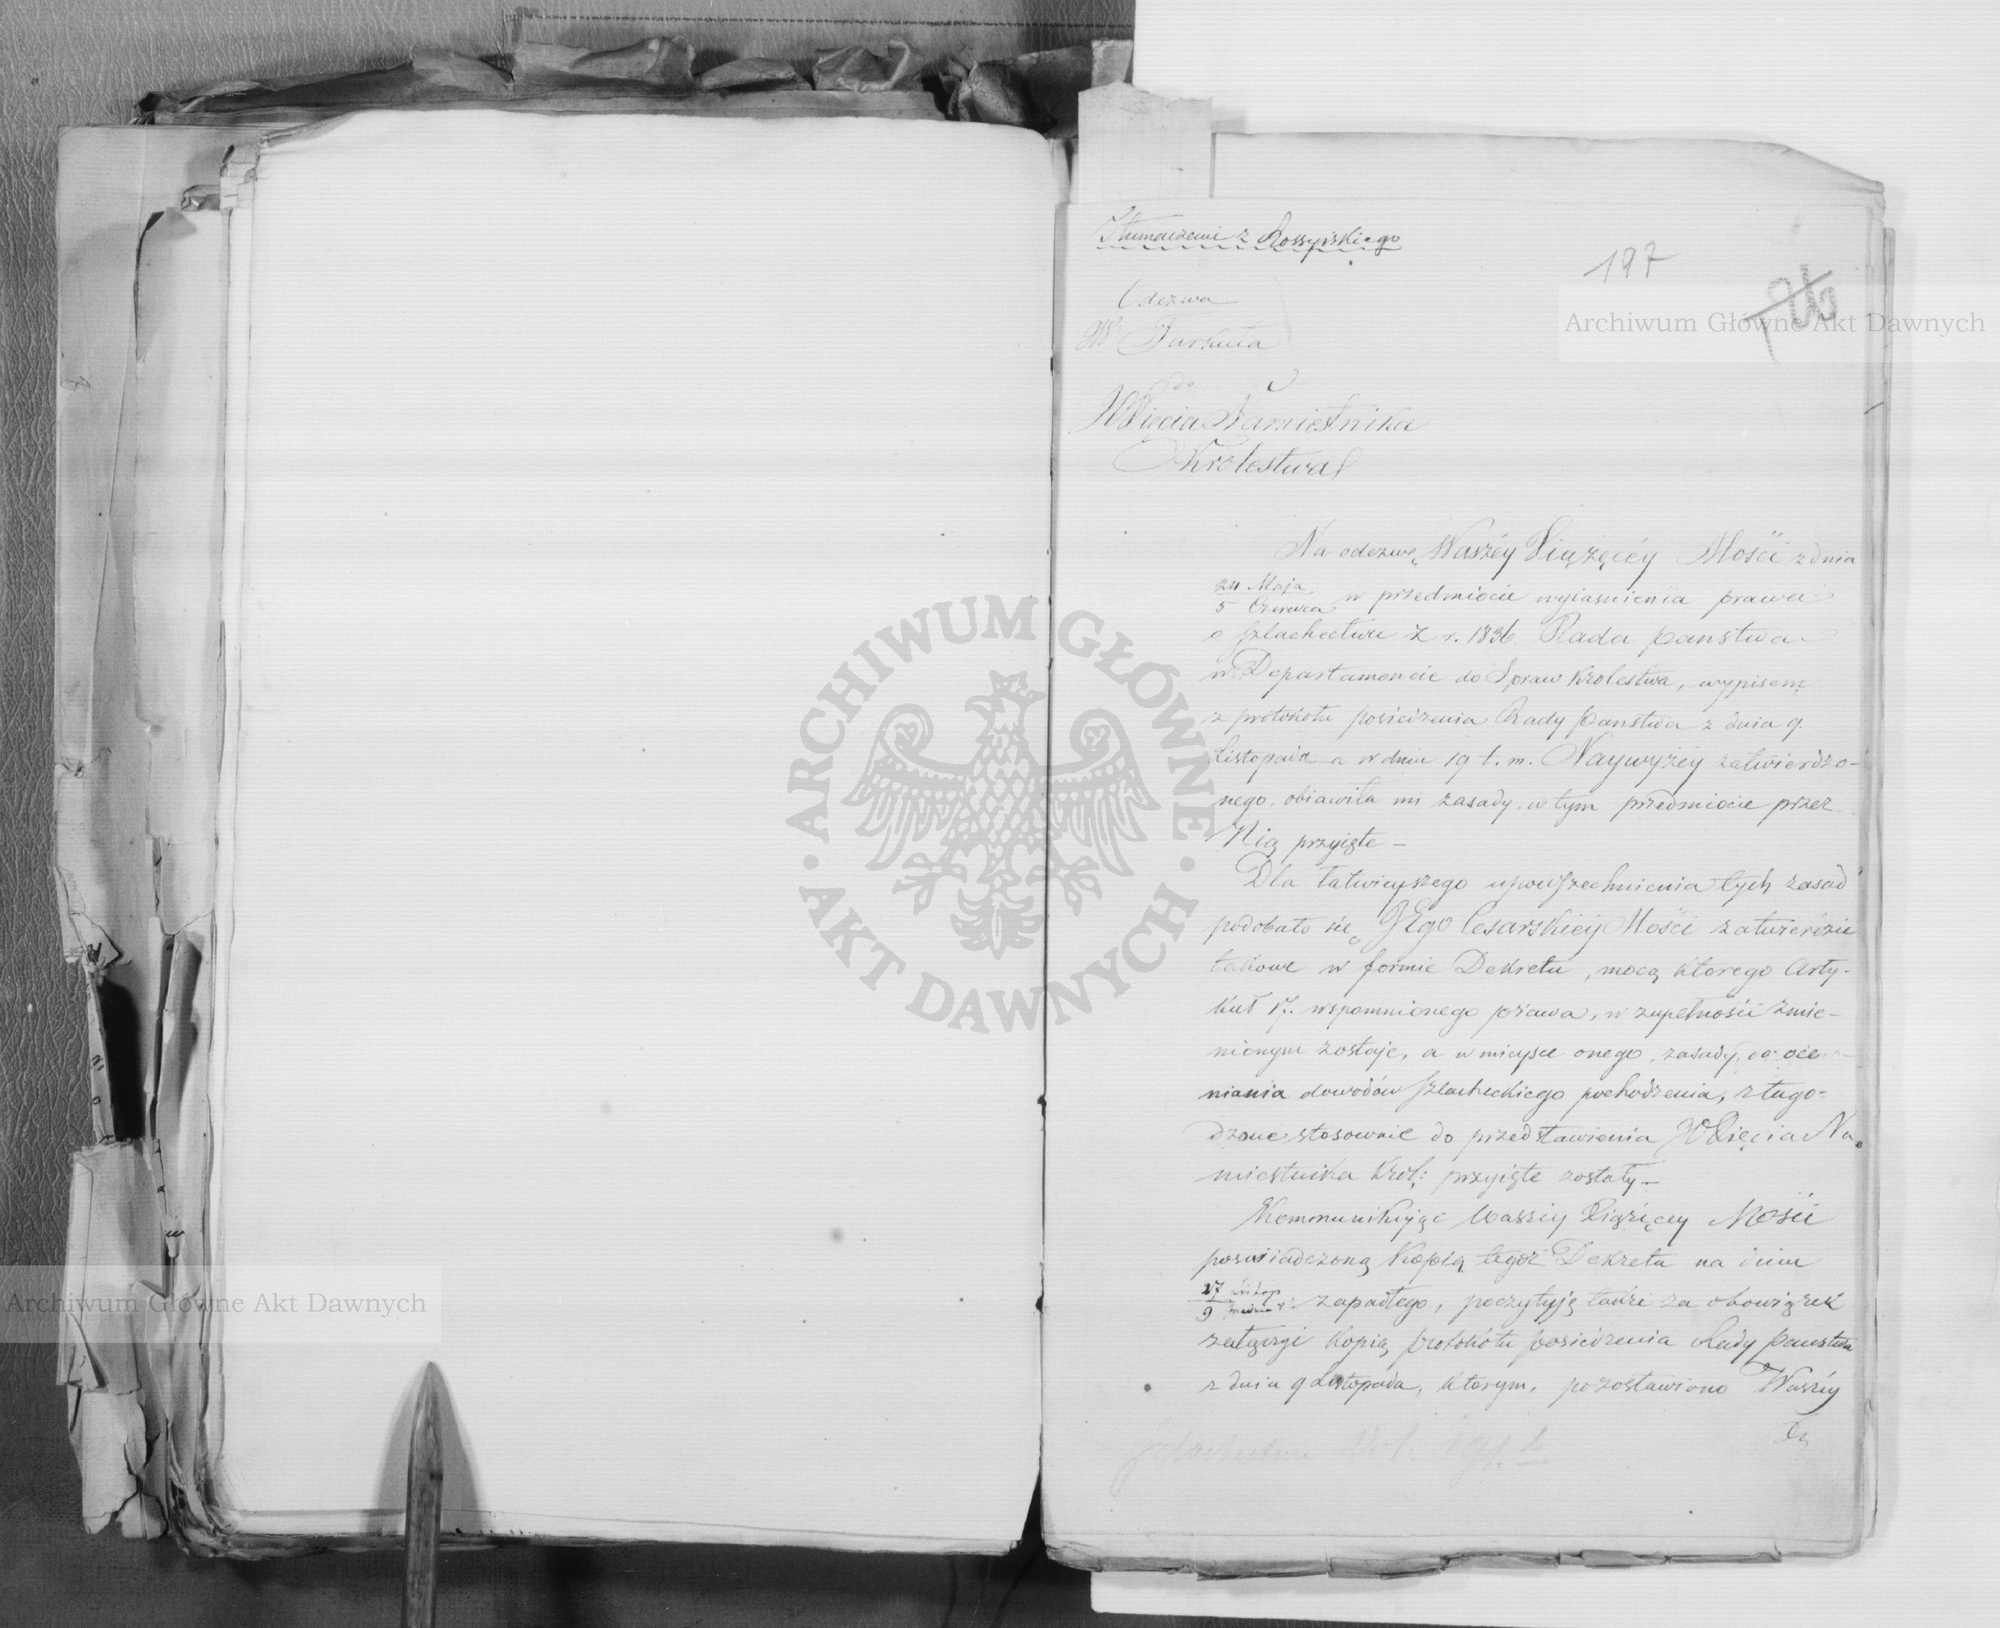 Tłumaczenie z Rossyiskiego
197
Odezwa
Turkuła
do
XBięcia Namiestnika
Królestwa
Na odezwę Waszéy Xiążęcéy Mości z dnia
24 Maja
5 Czerwca w przedmiocie wyiasnienia prawa
o szlachectwie z r. 1836. Rada panstwa
w Departamencie do Spraw Krolestwa, wypisem
z protokołu posiedzenia Rady panstwa z dnia 9.
Listopada a w dniu 19 t. m. Naywyżéy zatwierdzo-
nego, obiawiła mi zasady w tym przedmiocie przez
Nią przyięte —
Dla łatwieyszego upowszechnienia tych zasad
podobało się JEgo Cesarskiéy Mości zatwierdzic
takowe w formie Dekretu, mocą ktorego Arty-
kuł 17. wspomnionego prawa, w zupełnosci zmie-
nionym zostaje, a w mieysce onego, zasady, do oce-
niania dowodów szlacheckiego pochodzenia, złago-
dzone stosownie do przedstawienia XBięcia Na-
miestnika Król: przyięte zostały —
Kommunikując Waszéy Xiążęcey Mości
poswiadczoną Kopią tegoż Dekretu na dniu
27 Listop
9 zapadłego, poczytuję także za obowiązek
załączyć kopią protokołu posiedzenia Rady panstwa
z dnia 9 Listopada, ktorym, pozostawiono Waszéy
Archiwum Główne Akt Dawnych
Archiwum Główne Akt Dawnych
ARCHIWUM GŁÓWNE · AKT DAWNYCH ·